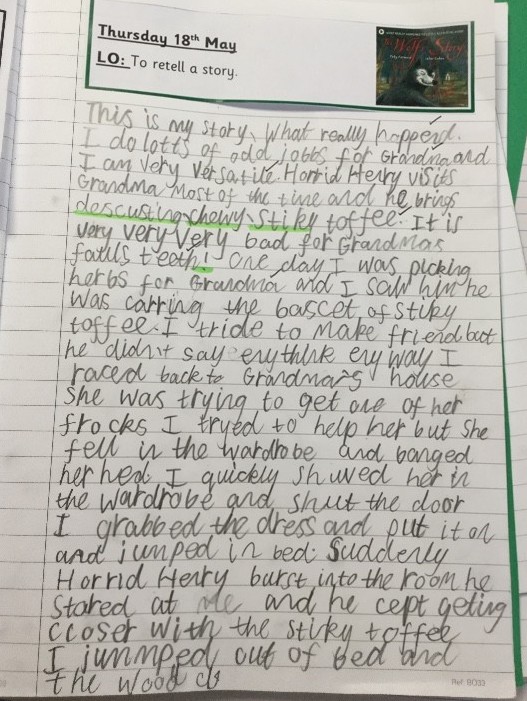 Thursday 18th May
LO: To retell a story.
The Wolf's Story
This is my story, What really happend.
I do lotts of odd jobbs for Grandma and
I am very versatile. Horrid Henry visits
Grandma most of the time and he brings
descusting, chewy, stiky toffee. It is
very very very bad for Grandmas
fatlls teath! One day I was picking
herbs for Grandma and I saw him he
was carring the bascet of stiky
toffee. I tride to make friend but
he didn't say enythink eny way I
raced back to Grandma's house
she was trying to get one of her
frocks I tryed to help her but she
fell in the wardrobe and banged
her hed. I quickly shuved her in
the wardrobe and shut the door
I grabbed the dress and put it on
and jumped in bed. Suddenly
Horrid Henry burst into the room he
stared at me and he cept geting
ccloser with the stiky toffee
I jummped out of bed and
the wood
Ref: BO33